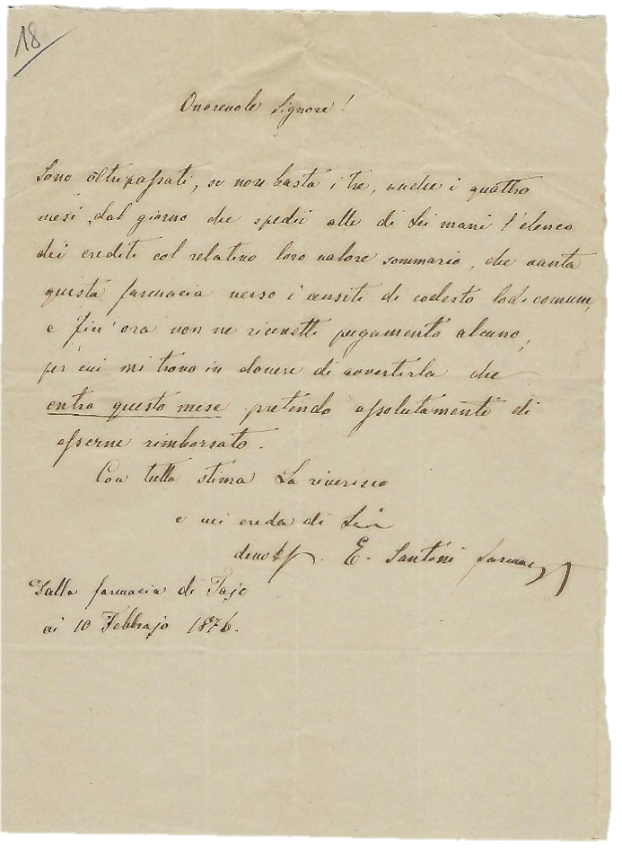 18
Onorevole Signore!
Sono oltrepassati, se non basta i tre, anche i quattro
mesi dal giorno che spedii alle di Lei mani l'elenco
dei crediti col relativo loro valore sommario, che vanta
questa farmacia verso i censiti di codesto lod. comune,
e fin' ora non ne ricevetti pagamento alcuno,
per cui mi trovo in dovere di avvertirla che
entro questo mese pretendo assolutamente di
esserne rimborsato.
Con tutta stima La riverisco
e mi creda di Lei
E. Santoni farmac
Dalla farmacia di Tajo
ai 10 Febbrajo 1876.